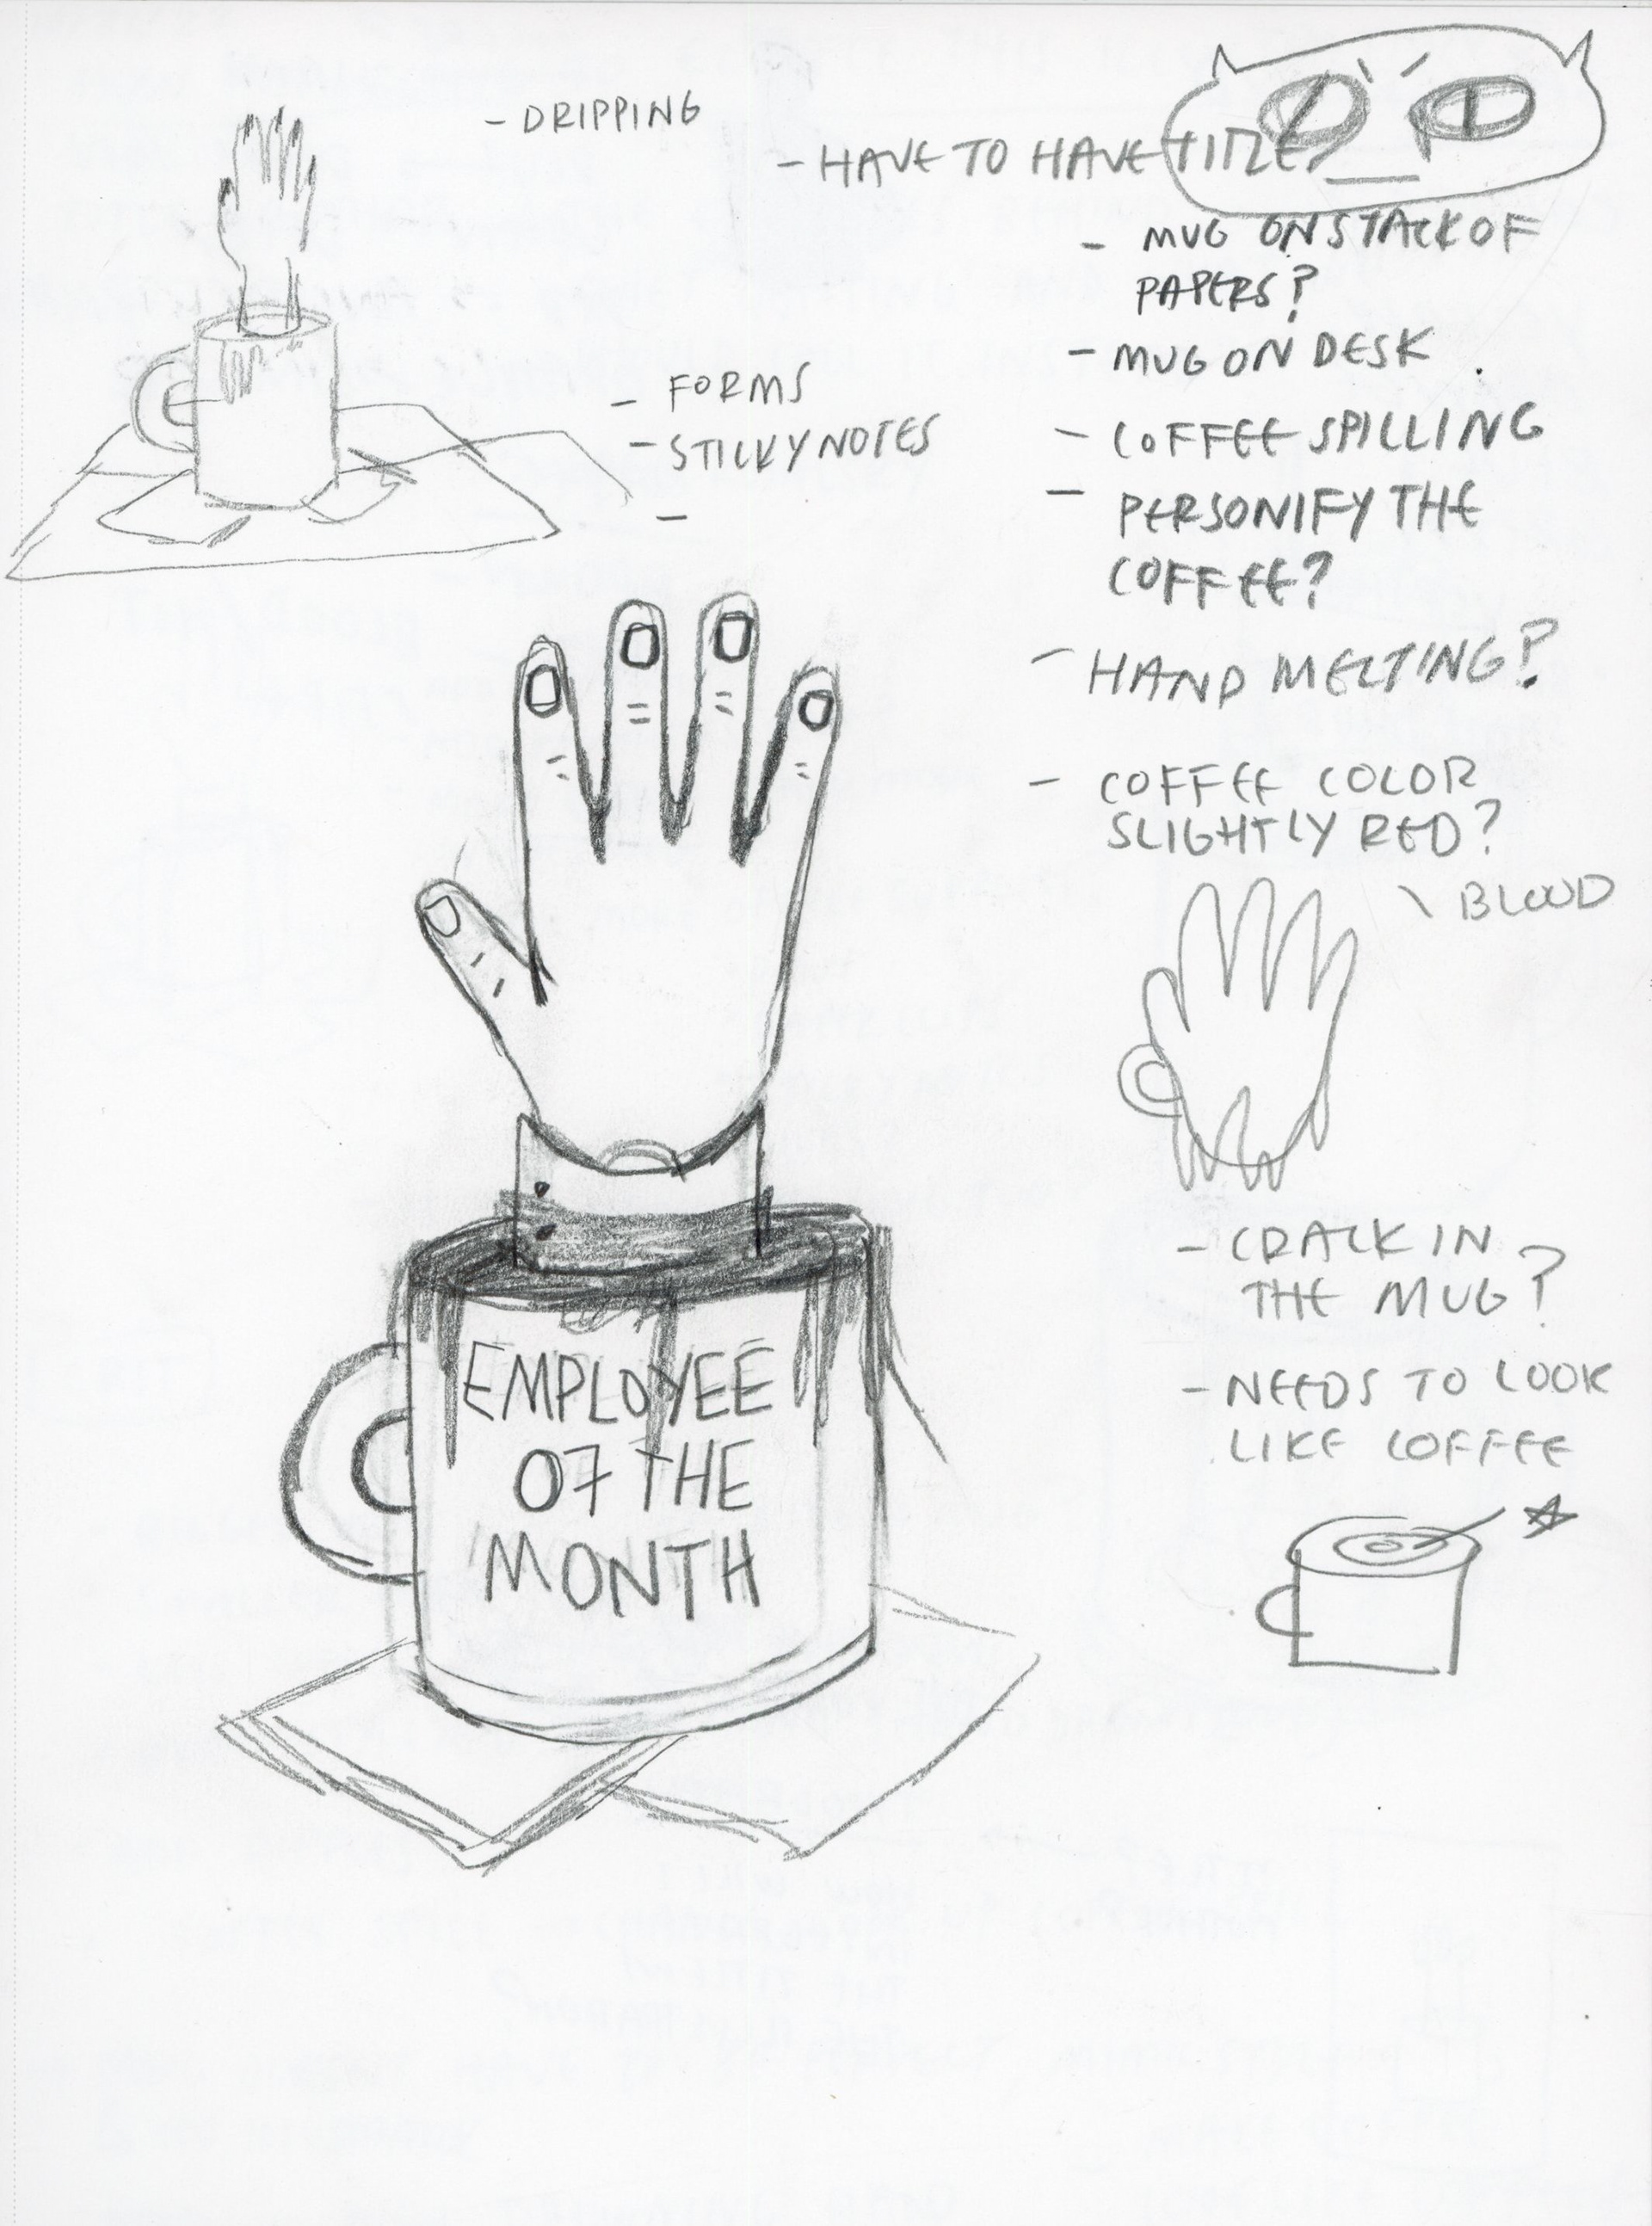 - DRIPPING
- HAVE TO HAVE TITLE
- MUG ON STACK OF
PAPERS?
- MUG ON DESK
- FORMS
- STICKY NOTES
-
- COFFEE SPILLING
- PERSONIFY THE
COFFEE?
- HAND MELTING?
- COFFEE COLOR
SLIGHTLY RED?
\ BLOOD
EMPLOYEE
OF THE
MONTH
- CRACK IN
THE MUG?
- NEEDS TO LOOK
LIKE COFFEE